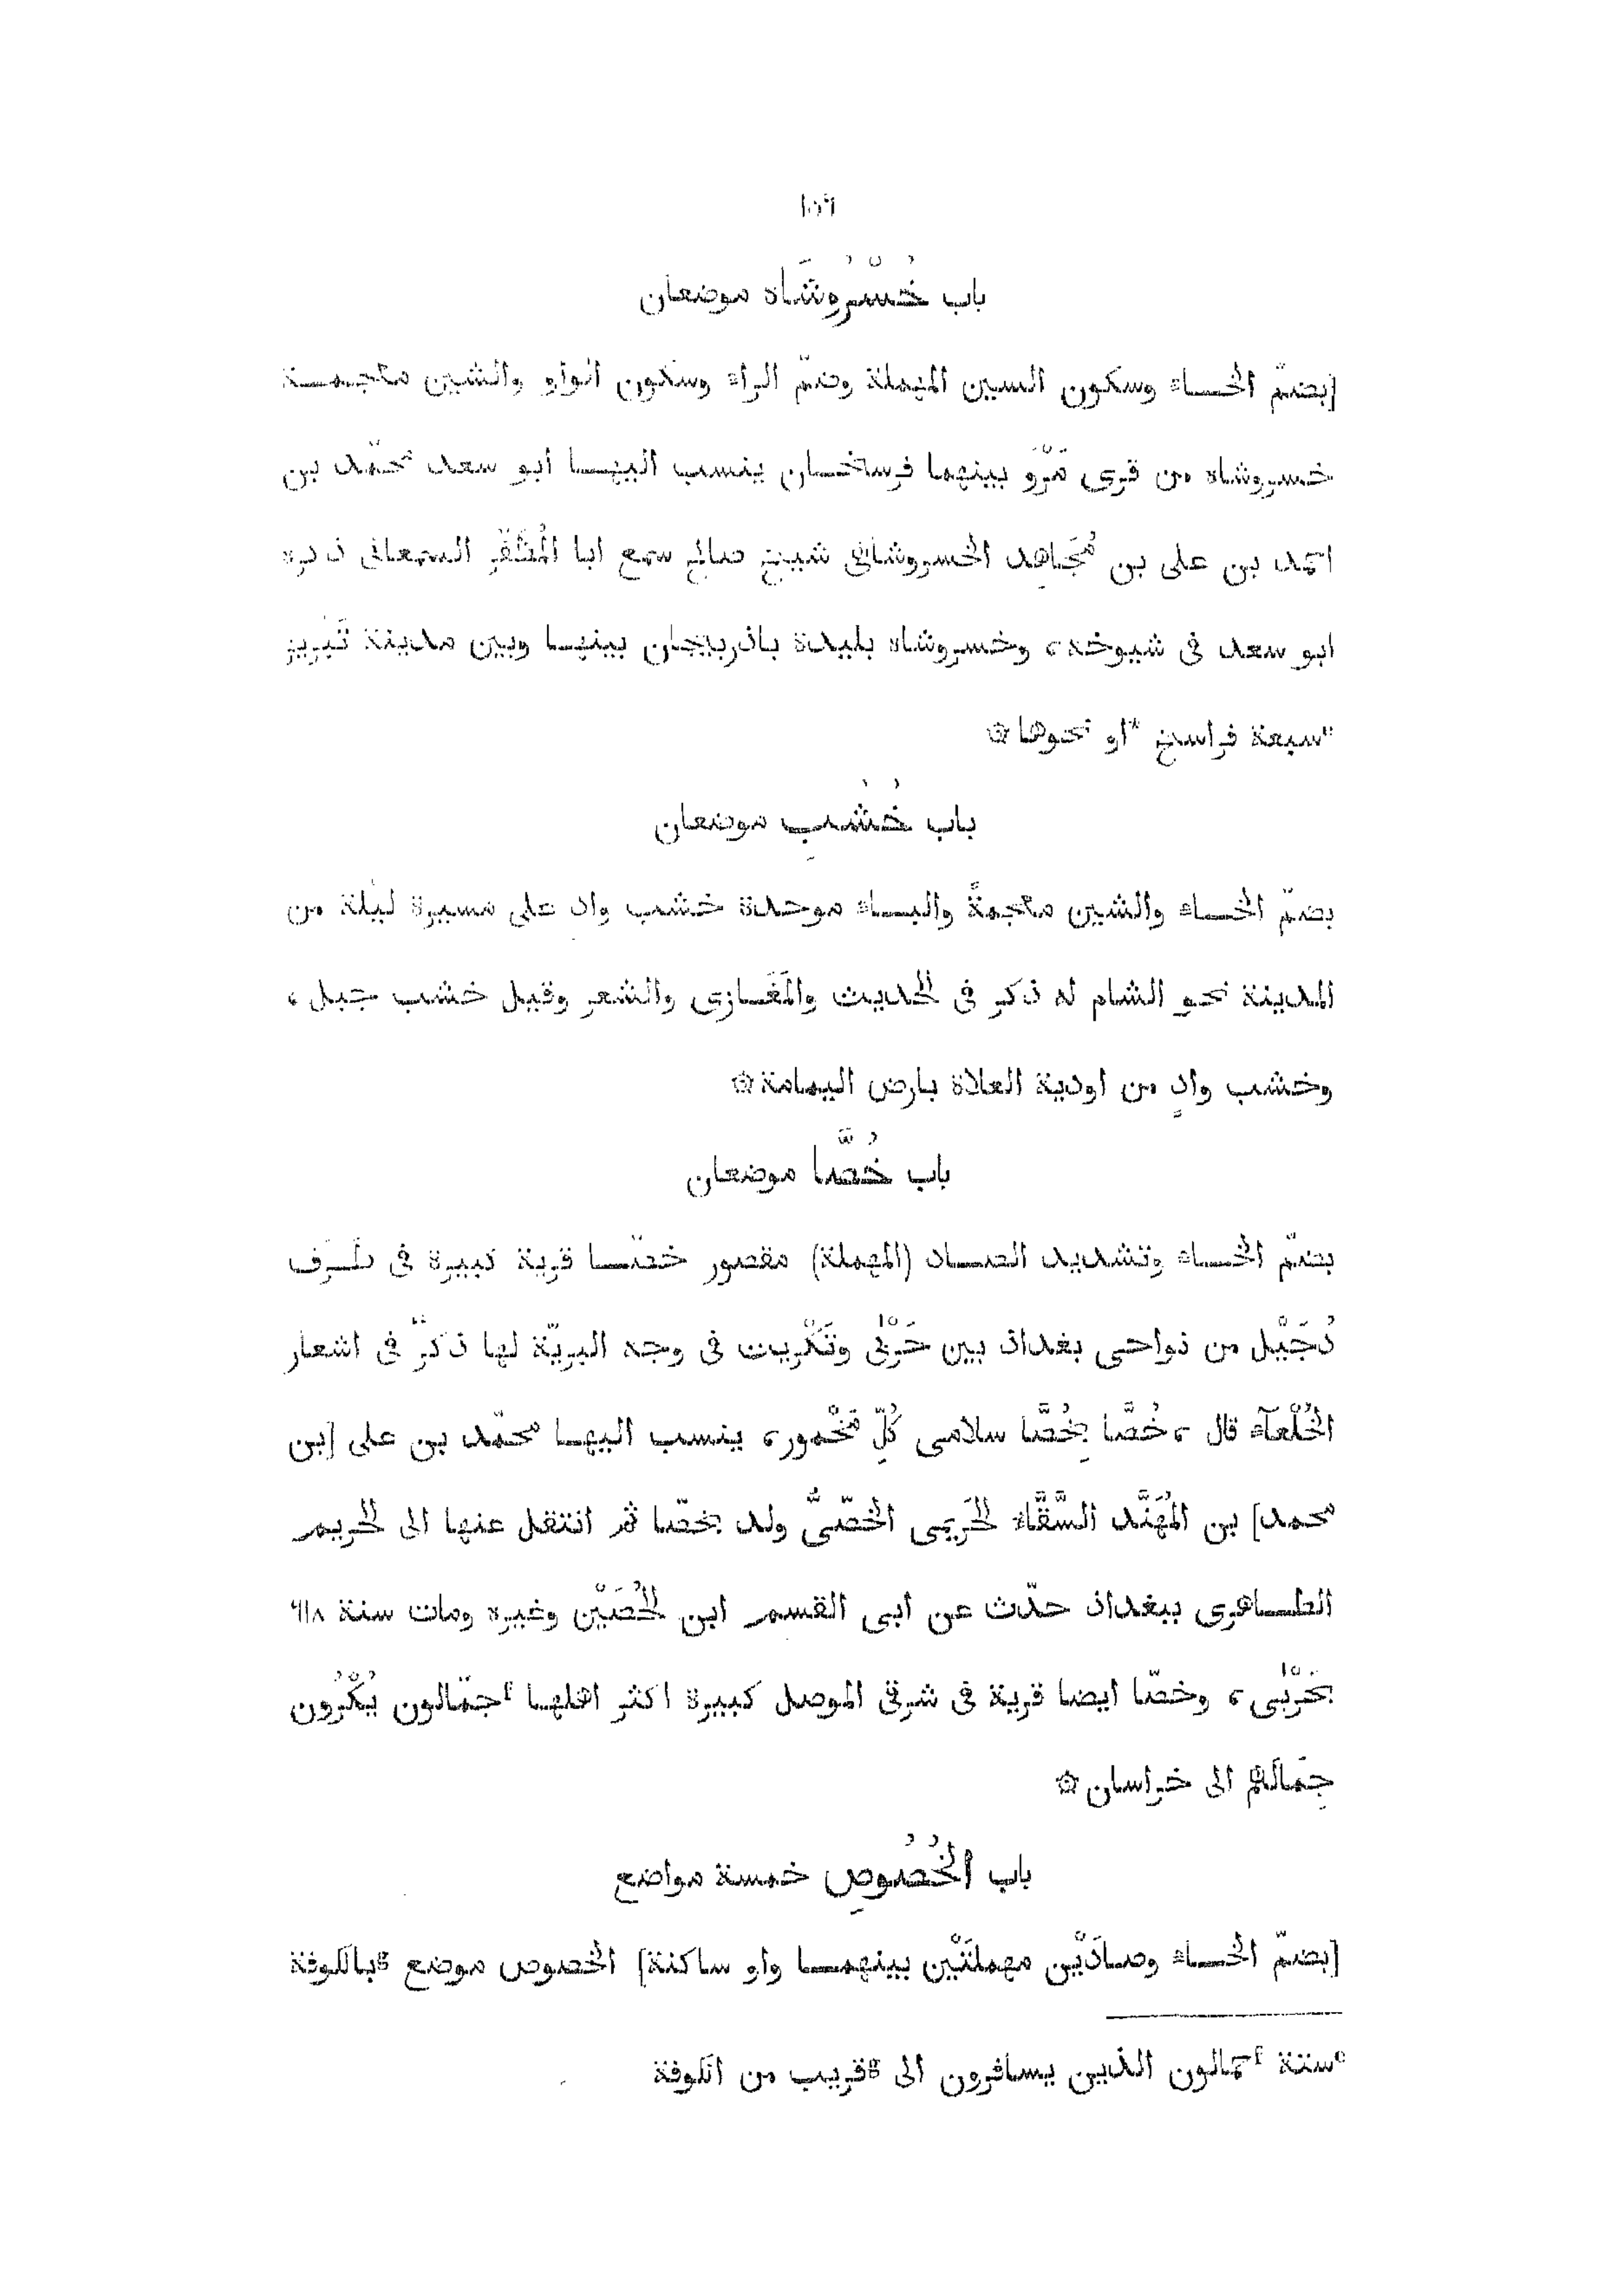 ١٥٦
باب خُسْرُوشَاه موضعان
[بضمّ الخاء وسكون السين المهملة وضمّ الراء وسكون الواو والشين معجمة
خسروشاه من قرى مَرْوَ بينهما فرسخان ينسب اليها ابو سعد محمّد بن
احمد بن على بن مُجَاهِد الخسروشاهى شيخ صالح سمع ابا المُظَفَّر السمعانى ذكره
ابو سعد فى شيوخه، وخسروشاه بليدة باذربيجان بينها وبين مدينة تَبْرِيز
ᵉسبعة فراسخ *او نحوها۞
باب خُشُبِ موضعان
بضمّ الخاء والشين معجمةً والباء موحدة خشب واد على مسيرة ليلة من
المدينة نحو الشام له ذكر فى الحديث والمَغَازى والشعر وقيل خشب جبل،
وخشب وادٍ من اودية العلاة بارض اليمامة۞
باب خُصَّا موضعان
بضمّ الخاء وتشديد الصاد (المهملة) مقصور خصّا قرية كبيرة فى طَرَف
دُجَيْل من نواحى بغداد بين حَرْبَى وتَكْرِيت فى وجه البريّة لها ذكرٌ فى اشعار
الخُلَعَآء قال، خُصَّا بِخُصَّا سلامى كُلِّ مَخْمور، ينسب اليها محمّد بن على [بن
محمد] بن المُهَنَّد السَّقَّاء الحَرِيمى الخُصّىُّ ولد بخصّا ثم انتقل عنها الى الحريم
الطاهرى ببغداد حدّث عن ابى القسم ابن الحُصَيْن وغيره ومات سنة ٦١٨
بحَرْبَى، وخصّا ايضا قرية فى شرقى الموصل كبيرة اكثر اهلها ᶠجمّالون يُكْرُون
جِمَالَهم الى خراسان۞
باب الخُصُوصِ خمسة مواضع
[بضمّ الخاء وصادَيْن مهملتَيْن بينهما واو ساكنة] الخصوص موضع ᵍبالكوفة
ᵉستة ᶠجمالون الذين يسافرون الى ᵍقريب من الكوفة